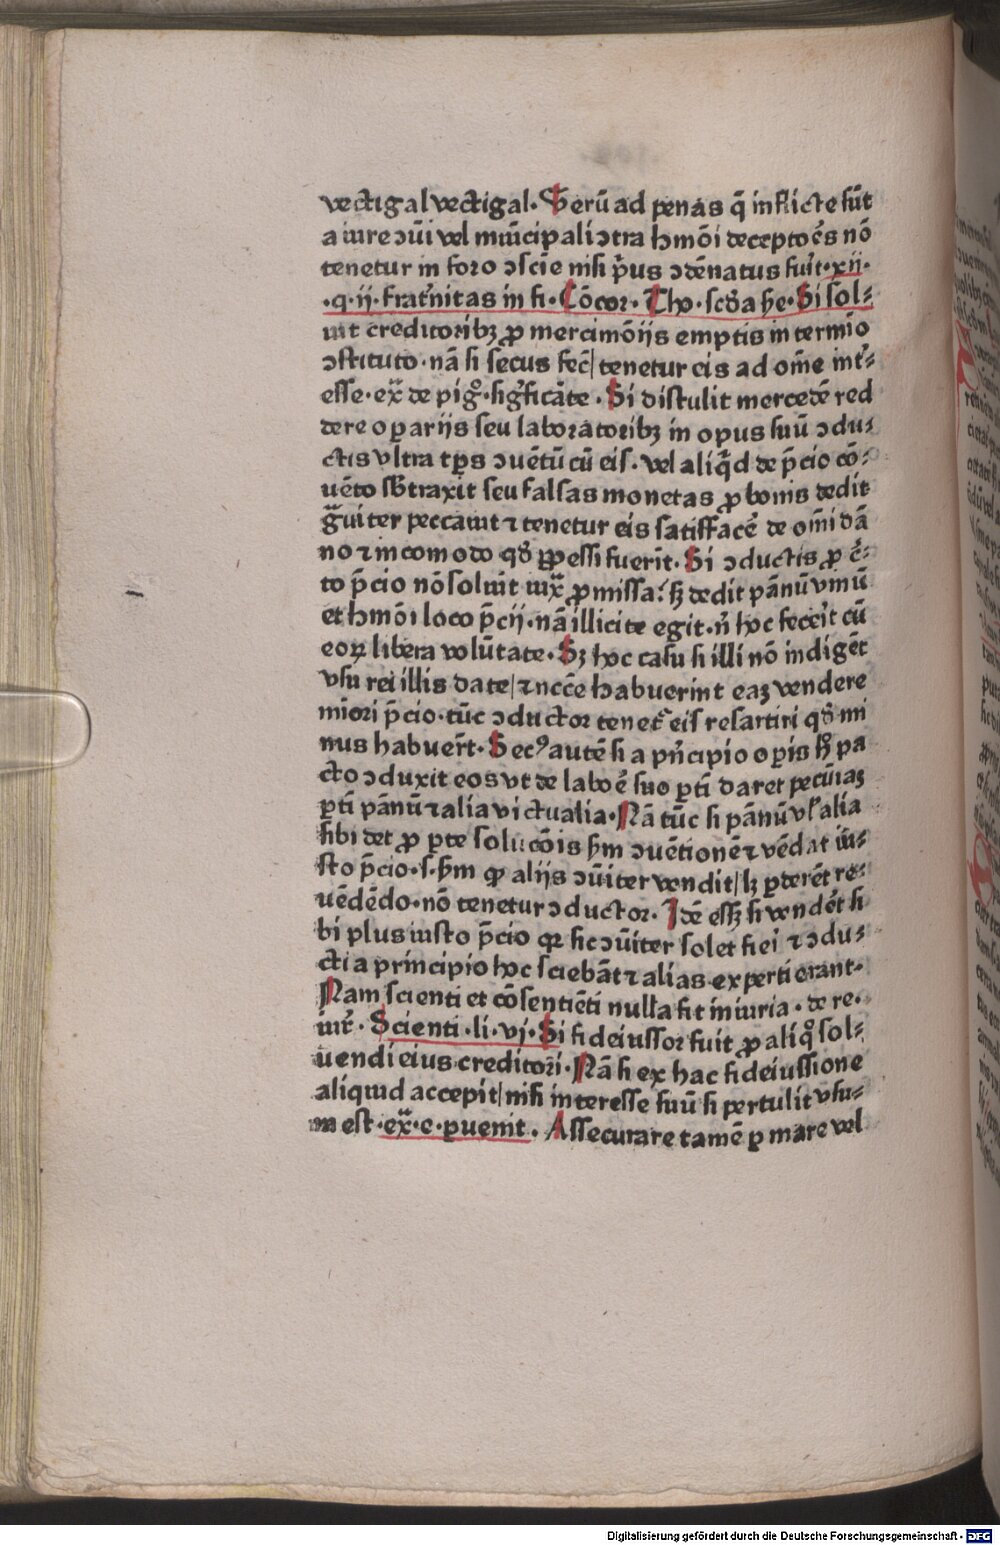 vectigal vectigal. Verū ad penas q̄ inflicte sūt
a iure ꝯūi vel mūicipali ꝯtra hmōi deceptoēs nō
tenetur in foro ꝯscīe nisi p̄us ꝯdēnatus fuit. xij.
.q.ij. fratnitas in fi. Cōcor. Tho. scḋa ẜe. Si sol⸗
uit creditoribꝫ ꝓ mercimōijs emptis in termīo
ꝯstituto. nā si secus fec̄ / tenetur eis ad om̄e int̄⸗
esse. ex̄ de pig̊. sigficāte. Si distulit mercedē red
dere oꝑarijs seu laboratoribꝫ in opus suū ꝯdu⸗
ctis vltra tp̄s ꝯuētū cū eis. vel aliq̄d de p̄cio cō⸗
uēto sb̄traxit seu falsas monetas ꝓ bonis dedit
g̈uiter peccauit ⁊ tenetur eis satisfacē de om̄i dā
no ⁊ incomodo qḋ ꝑpessi fuerīt. Si ꝯductis ꝓ c̄⸗
to p̄cio nō soluit iux̄ ꝓmissa: sꝫ dedit pānū vinū
et hmōi loco p̄cij. nā illicite egit. n̄ hoc fecerit cū
eoꝝ libera volūtate. Sꝫ hoc casu si illi nō indigēt
vsu rei illis date / ⁊ nccē habuerint eaꝫ vendere
miori p̄cio. tūc ꝯductor tenet̄ eis resartiri qḋ mi
nus habuer̄t. Secꝰ autē si a pncipio oꝑis sꝫ pa
cto ꝯduxit eos vt de laboē suo ꝑti daret pecūiaꝫ
ꝑti pānū ⁊ alia victualia. Nā tūc si pānū vl̓ alia
sibi det ꝓ ꝑte solucōis sm̄ ꝯuētionē ⁊ vēdat iū⸗
sto p̄cio. s. sm̄ ꝙ alijs ꝯūiter vendit / lꝫ ꝑderēt re⸗
uēdēdo. nō tenetur ꝯductor. Idē essꝫ si vendēt si
bi plus iusto p̄cio qꝛ sic ꝯūiter solet fiei ⁊ ꝯdu⸗
cti a principio hoc sciebāt ⁊ alias experti erant.
Nam scienti et cōsentiēti nulla fit iniuria. de re.
iur̄. Scienti. li. vj. Si fideiussor fuit ꝓ aliq̊ sol⸗
uendi eius creditori. Nā si ex hac fideiussione
aliquid accepit / nisi interesse suū si pertulit vsu⸗
ra est. ex̄. e. ꝑuenit. Assecurare tamē ꝑ mare vel
Digitalisierung gefördert durch die Deutsche Forschungsgemeinschaft - DFG